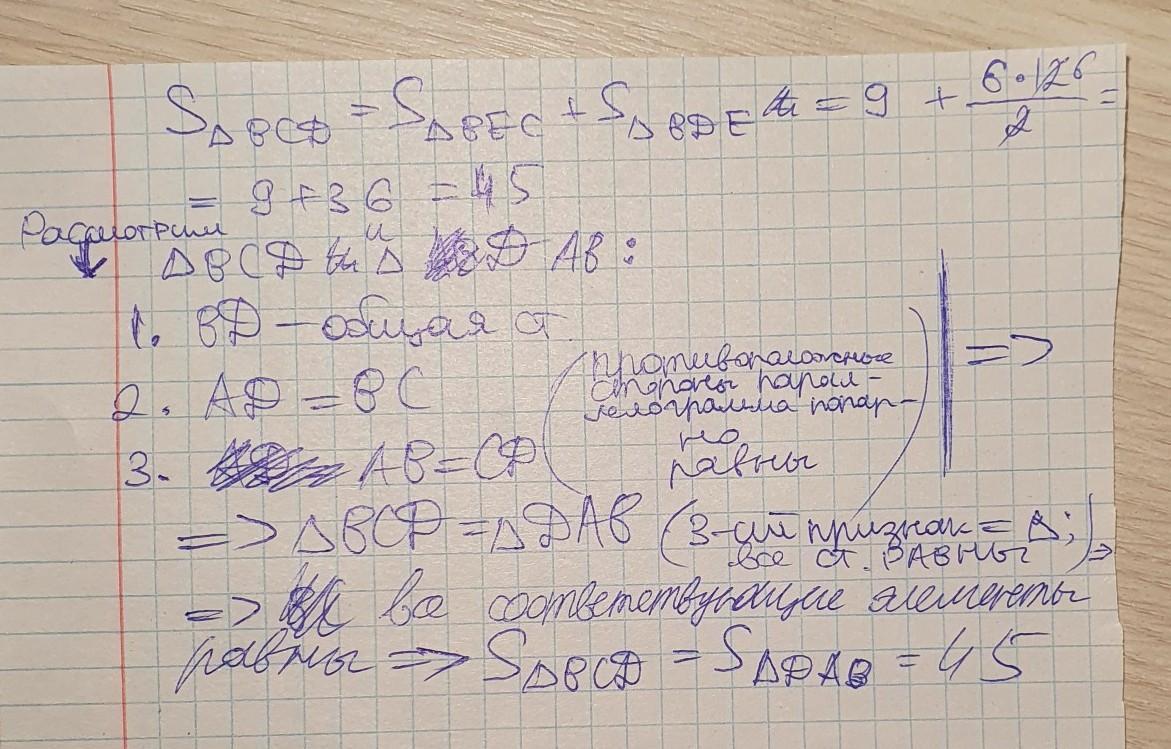 S△BCD = S△BEC + S△BDE = 9 + 6·126/2 =
= 9 + 36 = 45
Рассмотрим
↓ △BCD и △ DAB:
1. BD – общая ст.
2. AD = BC
3. AB = CD
(противоположные
стороны парал-
лелограмма попар-
но
равны)
=>
=> △BCD = △DAB (3-ий признак = △;
все ст. РАВНЫ) =>
=> все соответствующие элементы
равны => S△BCD = S△DAB = 45